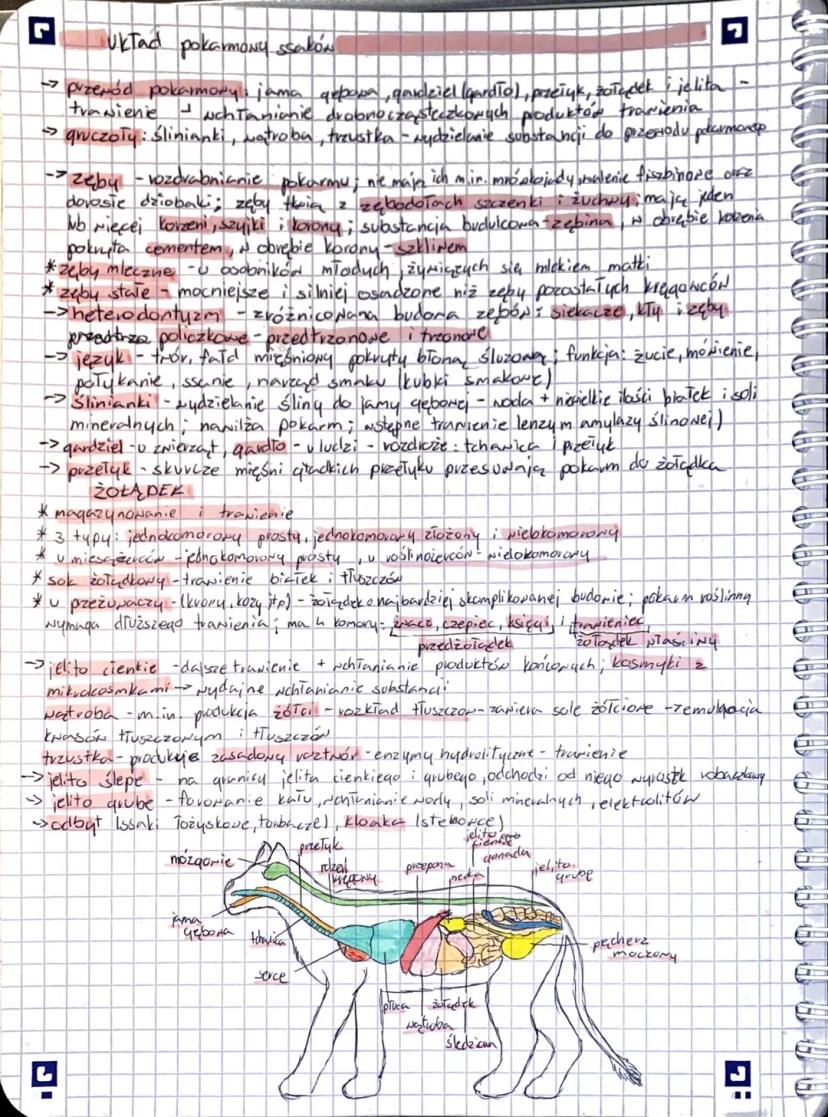 UKŁAD pokarmowy ssaków
→ przewód pokarmowy: jama gębowa, gardziel (gardło), przełyk, żołądek i jelita -
trawienie + wchłanianie drobnocząsteczkowych produktów trawienia
→ gruczoły: ślinianki, wątroba, trzustka - wydzielanie substancji do przewodu pokarmowego
→ zęby - rozdrabnianie pokarmu; nie mają ich m.in. mrówkojady, walenie fiszbinowe oraz
dorosłe dziobaki; zęby tkwią z zębodołach szczęki i żuchwy; mają jeden
lub więcej korzeni, szyjki i korony; substancja budulcowa - zębina, w obrębie korzenia
pokryta cementem, w obrębie korony - szkliwem
* zęby mleczne - u osobników młodych, żywiących się mlekiem matki
* zęby stałe - mocniejsze i silniej osadzone niż zęby pozostałych kręgowców
→ heterodontyzm - zróżnicowana budowa zębów: siekacze, kły i zęby
policzkowe - przedtrzonowe i trzonowe
→ język - twór, fałd mięśniowy pokryty błoną śluzową; funkcja: żucie, mówienie,
połykanie, ssanie, narząd smaku (kubki smakowe)
→ ślinianki - wydzielanie śliny do jamy gębowej - woda + niewielkie ilości białek i soli
mineralnych; nawilża pokarm; wstępne trawienie (enzym amylazy ślinowej)
→ gardziel - u zwierząt, gardło - u ludzi - rozdroże: tchawica i przełyk
→ przełyk - skurcze mięśni gładkich przełyku przesuwają pokarm do żołądka
ŻOŁĄDEK
* magazynowanie i trawienie
* 3 typy: jednokomorowy prosty, jednokomorowy złożony i wielokomorowy
* u mięsożerców - jednokomorowy prosty, u roślinożerców - wielokomorowy
* sok żołądkowy - trawienie białek i tłuszczów
* u przeżuwaczy - (krowy, kozy itp) - żołądek o najbardziej skomplikowanej budowie; pokarm roślinny
wymaga dłuższego trawienia; ma 4 komory: żwacz, czepiec, księgi i trawieniec
przedżołądek żołądek właściwy
→ jelito cienkie - dalsze trawienie + wchłanianie produktów końcowych; kosmyki z
mikrokosmkami → wydajne wchłanianie substancji
wątroba - m.in. produkcja żółci - rozkład tłuszczow - zawiera sole żółciowe - emulgacja
kwasów tłuszczowym i tłuszczów
trzustka - produkuje zasadowy roztwór - enzymy hydrolityczne - trawienie
→ jelito ślepe - na granicy jelita cienkiego i grubego, odchodzi od niego wyrostk robaczkowy
→ jelito grube - formowanie kału, wchłanianie wody, soli mineralnych, elektrolitów
→ odbyt (ssaki łożyskowe, torbacze), kloaka (stekowce)
mózgowie
przełyk
rdzeń
kręgowy
przepona
nerka
jelito
cienkie
gonada
jelito
grube
jama
gębowa
tchawica
serce
płuca
wątroba
żołądek
śledziona
pęcherz
moczowy